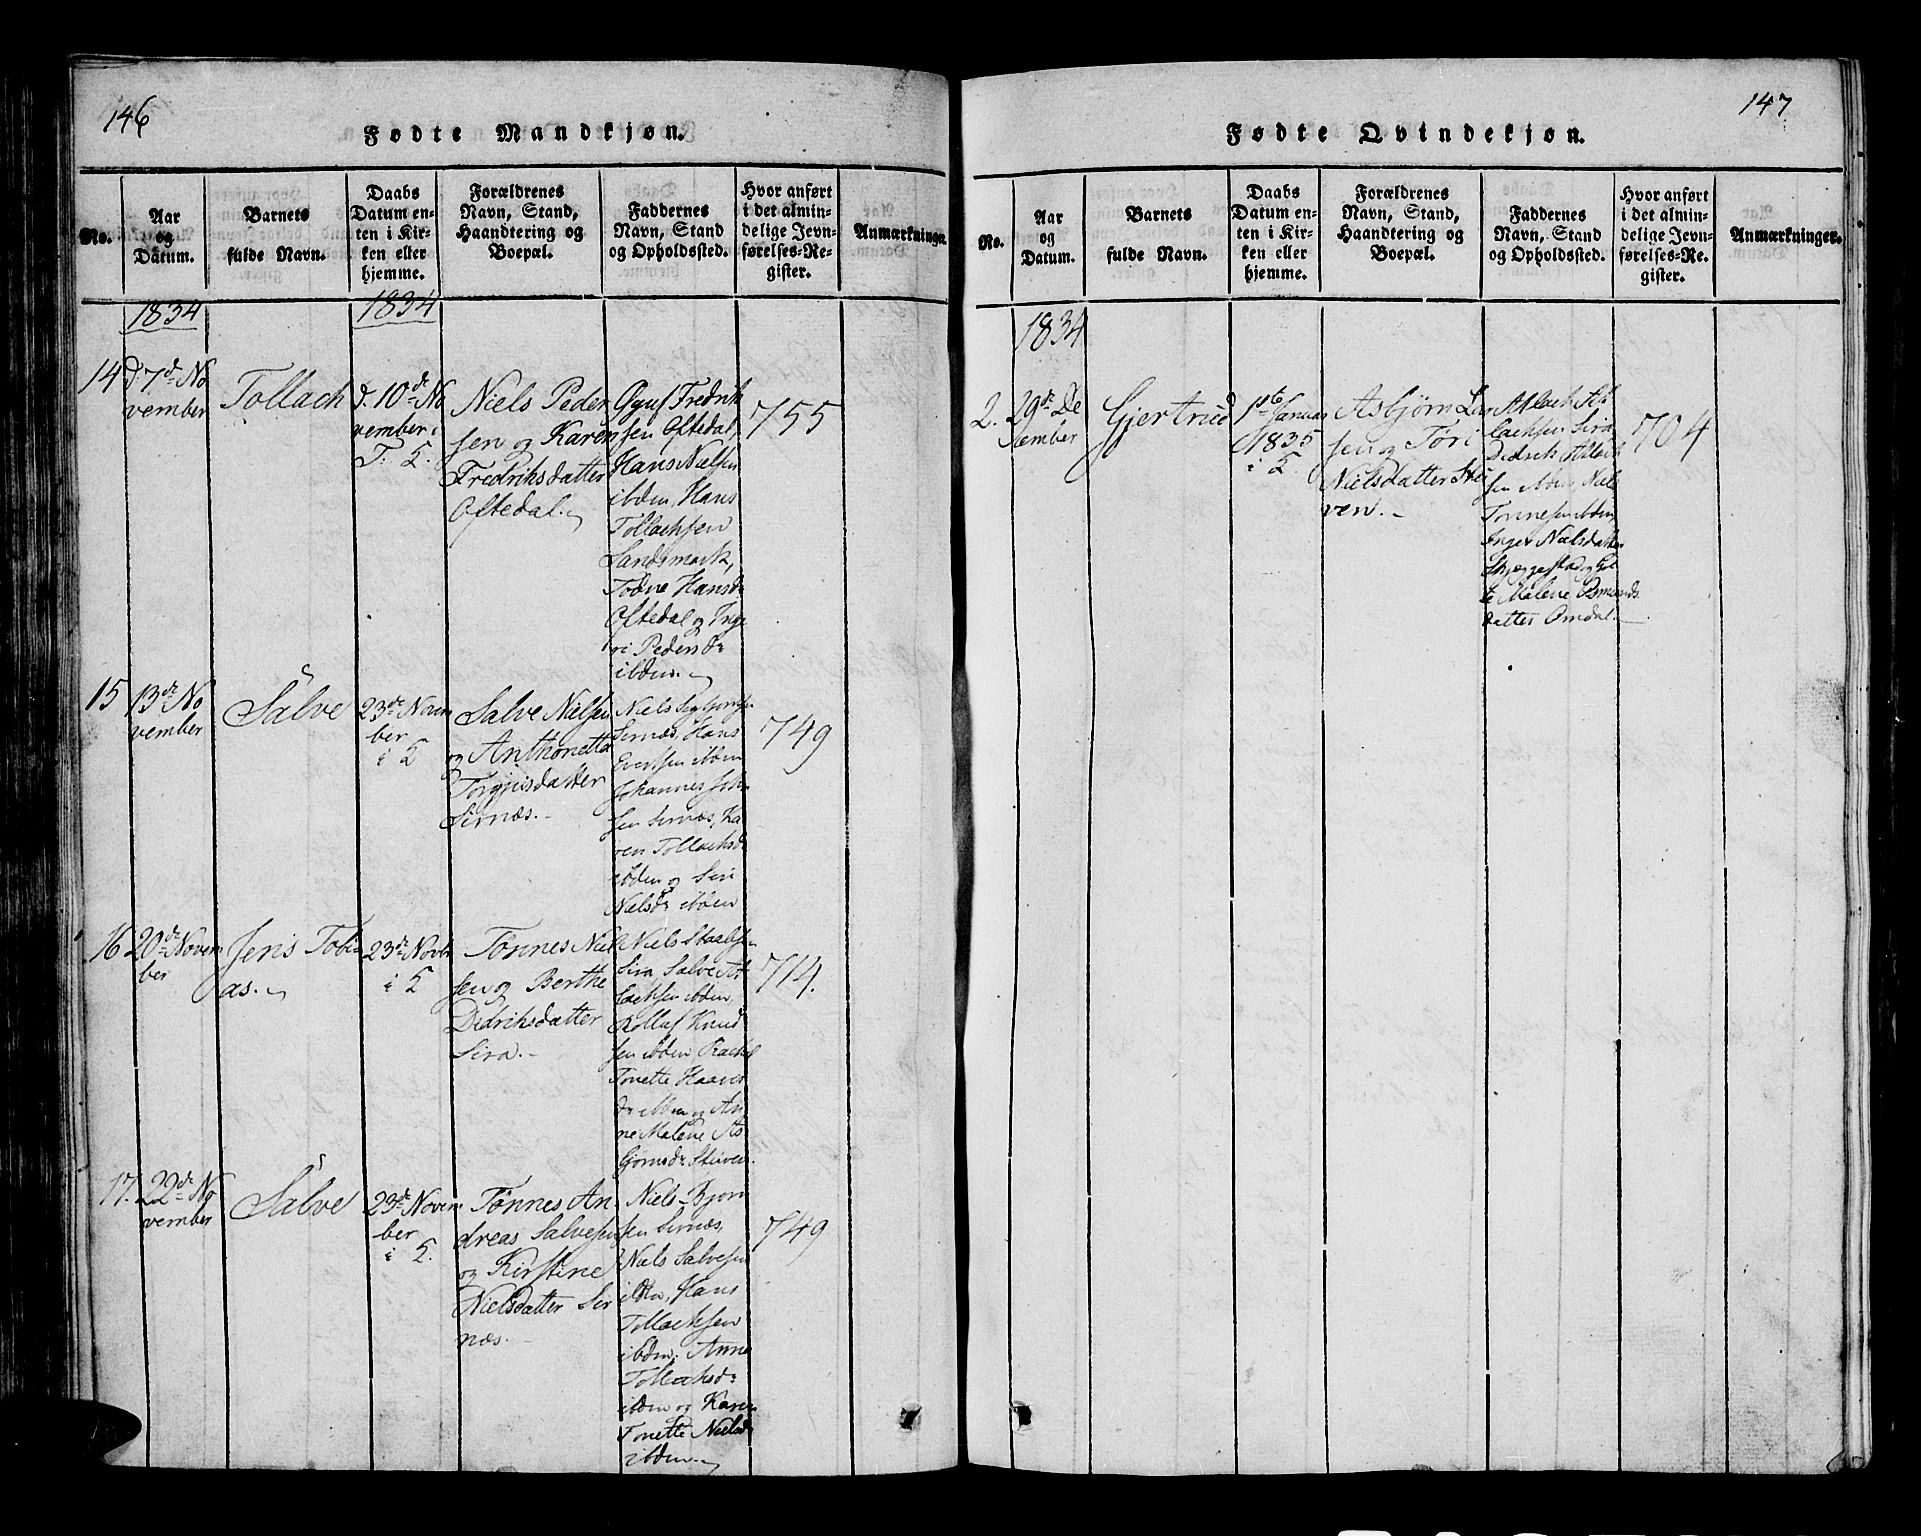 146
Fødte Mandkjøn.
No.
Aar
og
Datum.
Barnets
fulde Navn.
Daabs
Datum en-
ten i Kir-
ken eller
hjemme.
Forældrenes
Navn, Stand,
Haandtering og
Boepæl.
Faddernes
Navn, Stand
og Opholdssted.
Hvor anført
i det almin-
delige Jevn-
førelses-Re-
gister.
Anmærkninger.
1834
1834
14
d. 7de No
vember
Tollach
d. 10de No
vember i
Niels Peder
sen og Karen
Fredriksdatter
Oftedal.
Fredrik
sen Oftedal,
Hans Nielsen
ibden, Hans
Tollachsen
Sandsmark,
Todne Hansdr
Oftedal og Inge
ri Pedersdr
ibden.
755
15
13de No
vember
Salve
23de Novem
ber
i
Salve Nielsen
og Anthonetta
Torgjusdatter
Sirnæs.
Niels
Sirnæs, Hans
Evertsen ibden
Johannes
sen Sirnæs, Ka
ren Tollachsd
ibden og Siri
Nielsdr ibden
749
16
20de Novem
ber
Jens Tobi
as.
23de Novbr
i
Tønnes Niel
sen og Berthe
Didriksdatter
Sira.
Niels Staalesen
Sira, Salve At
lachsen ibden,
Rolluf Knud
sen ibden Rachel
Tonette Haaver
dr ibden og An
ne Malene As
bjornsdr Stuven.
714.
17.
22de No
vember
Salve
23de Novem
ber
i
Tønnes An
dreas Salvesen
og Kirstine
Nielsdatter Sir
næs.
Niels Bjorn
sen Sirnæs,
Niels Salvesen
ibdn, Hans
Tollachsen
ibden, Anne
Tollachsdr
ibden og Karen
Tonette Nielsdr
ibden.
749
147
Fødte Qvindekjøn.
No.
Aar
og
Datum.
Barnets
fulde Navn.
Daabs
Datum en-
ten i Kir-
ken eller
hjemme.
Forældrenes
Navn, Stand,
Haandtering og
Boepæl.
Faddernes
Navn, Stand
og Opholdssted.
Hvor anført
i det almin-
delige Jevn-
førelses-Re-
gister.
Anmærkninger.
1834
2.
29de De
cember
Gjertrud
1ste Januar
1835
i
Asbjørn Lar
sen og Töri
Nielsdatter Stu
ven.
Atlach At
lachsen Sira
Didrik Atlach
sen ibden, Niels
Tonnesen ibden,
Inger Nielsdatter
Skjeggestad og
Malene Osmunds
datter Omdal.
704